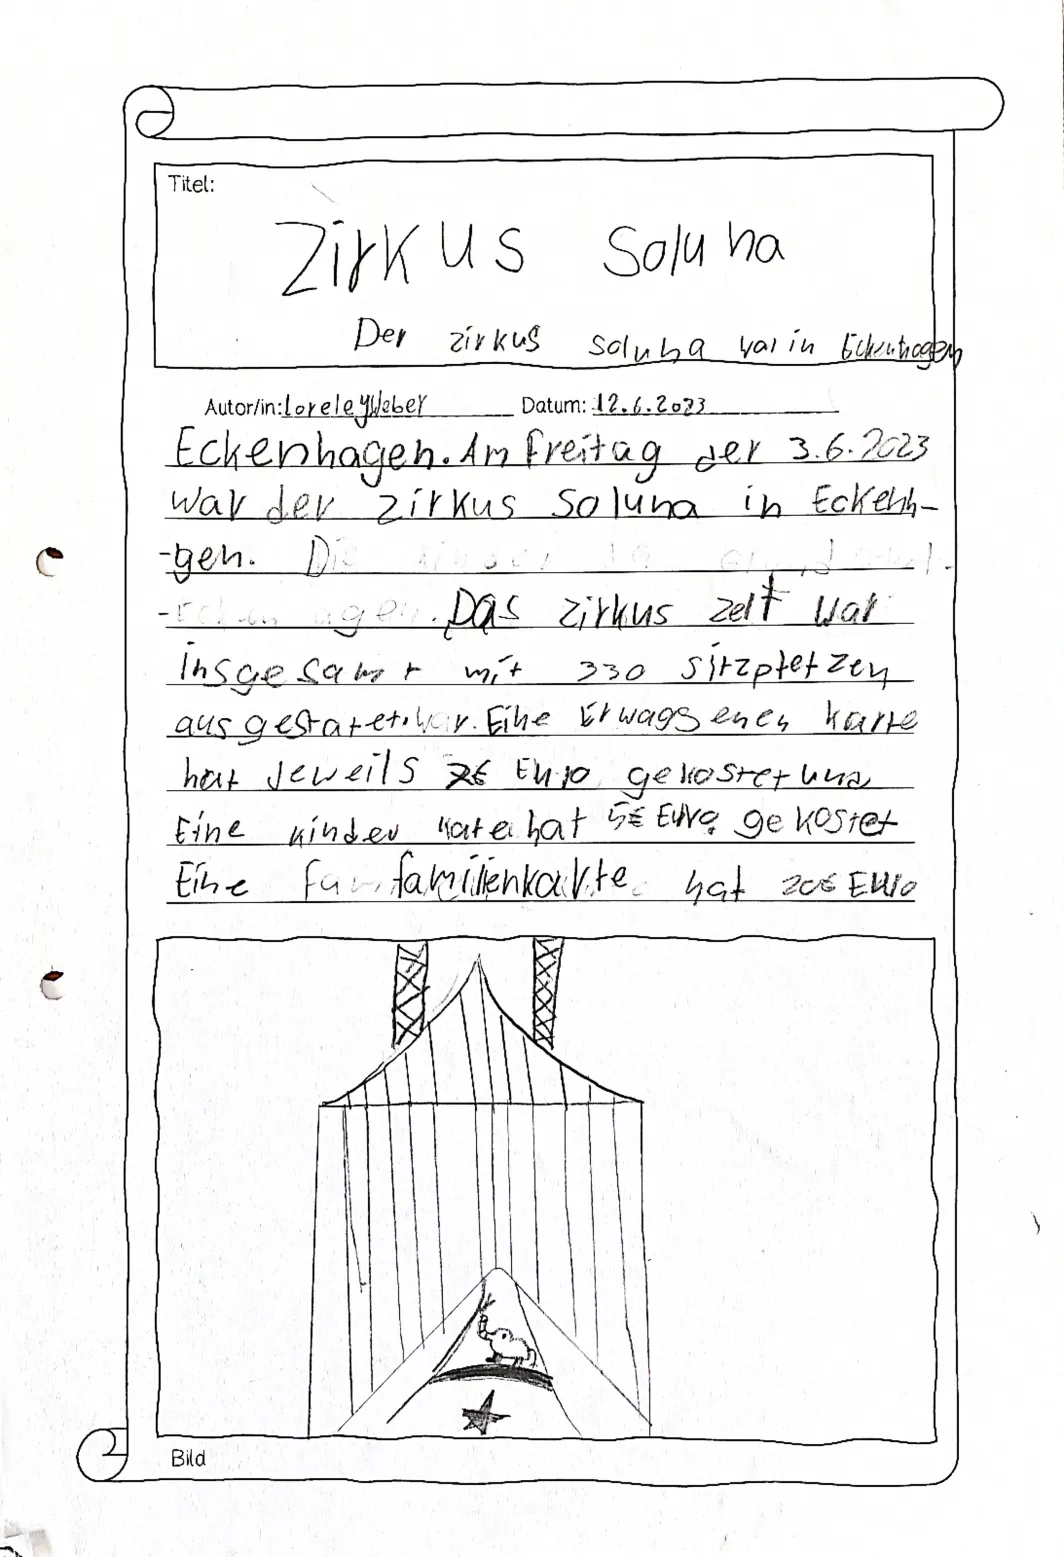 Titel:
Zirkus Soluna
Der zirkus soluna war in Eckenhagen
Autor/in: Loreley Weber Datum: 12.6.2023
Eckenhagen. Am Freitag der 3.6.2023
war der zirkus Soluna in Eckenh-
-gen. Die
Das zirkus zelt war
insgesamt mit 330 sitzpletzen
ausgestatet. Eine Erwagsenen karte
hat jeweils 7€ Euro gekostet und
Eine kinder karte hat 5€ Euro gekostet
Eine familienkarte hat 20€ Euro
Bild